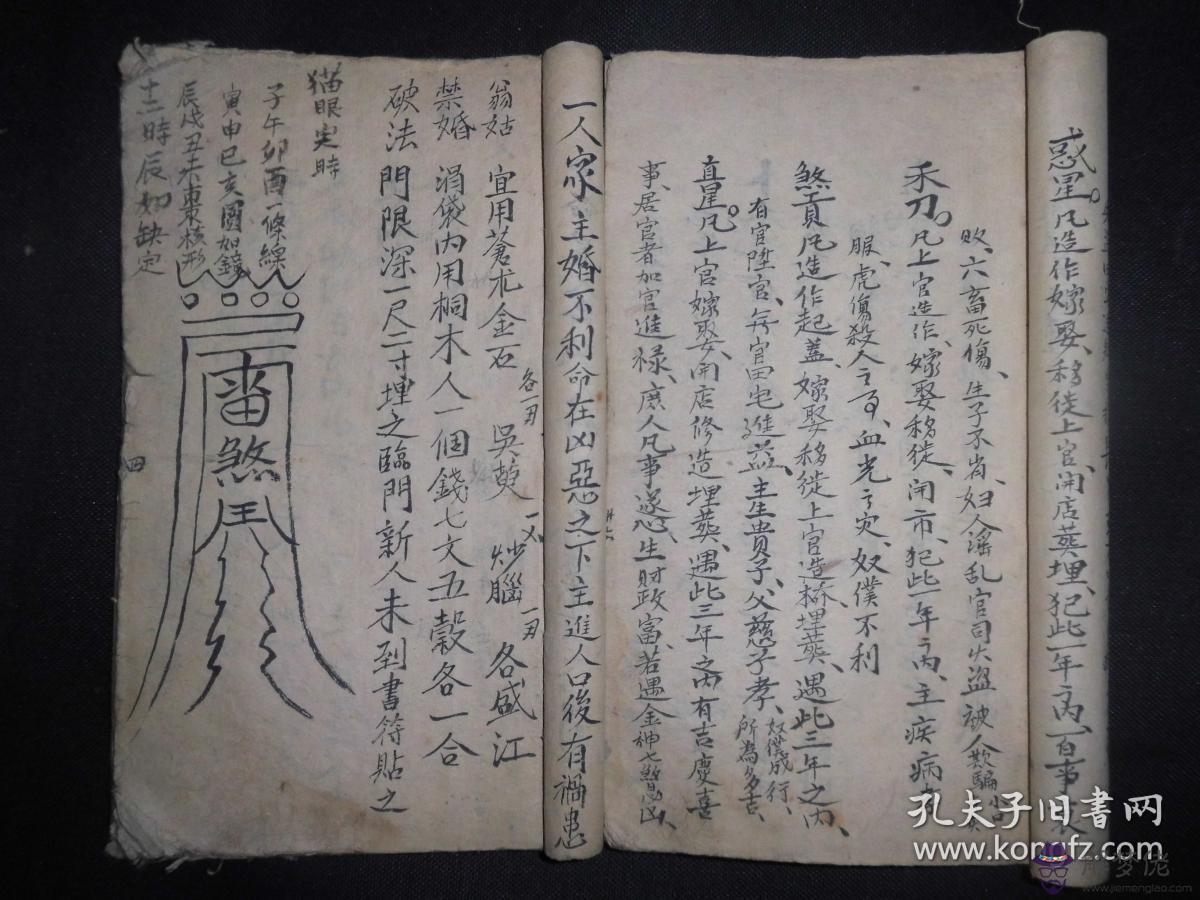 惑星。凡造作嫁娶、移徙上官、開店葬埋、犯此一年內、百事
敗、六畜死傷、生子不肖、妇人滛乱官司火盗被人欺騙
禾刀。凡上官造作、嫁娶移徙、開市、犯此一年內、主疾病
服、虎傷殺人之事、血光之灾、奴僕不利
煞貢凡造作起蓋、嫁娶移徙上官造桥埋葬、遇此三年之内、
有官陞官、無官田宅進益、主生貴子、父慈子孝、奴僕成行、
所為多吉、
直星。凡上官嫁娶、開店修造埋葬、遇此三年之內有吉慶喜
事、居官者加官進禄、庶人凡事遂心、生財致富、若遇金神七煞凶、
一人家主婚不利命在凶惡之下主進人口後有禍患
翁姑 宜用蒼朮金石各一刄 吳萸一乂 炒腦一刄 各盛江
禁婚 涓袋内用桐木人一個錢七文五穀各一合
破法 門限深一尺二寸埋之臨門新人未到書符貼之
猫眼定時
子午卯酉一條線
寅申巳亥圓如鏡
辰戌丑未棗核形
十二時辰如缺定
畨煞
四
孔夫子旧书网
www.kongfz.com
解梦佬
www.jiemenglao.com